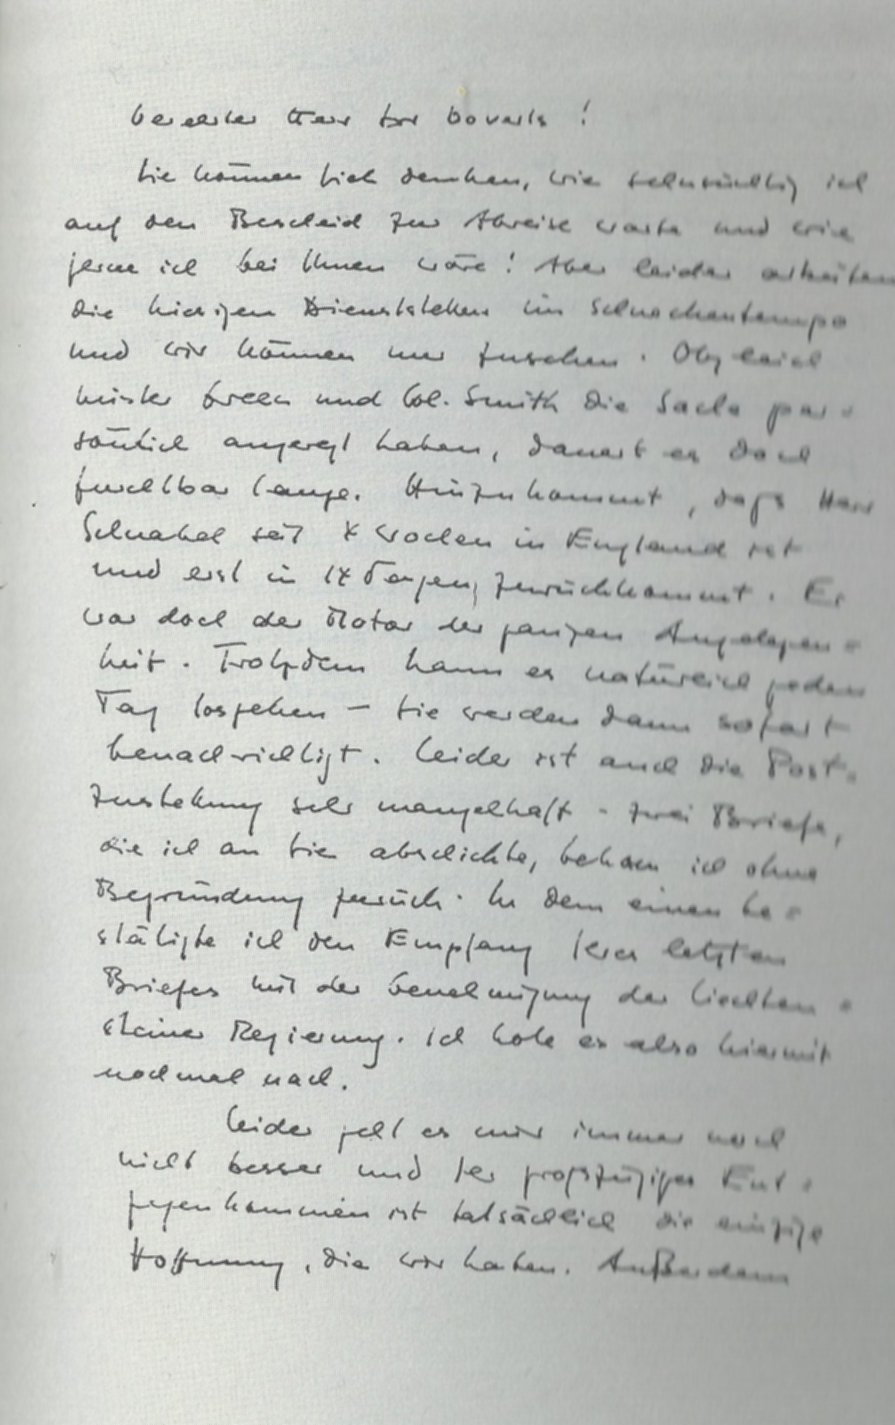 Verehrter Herr Dr. Goverts!
Sie können sich denken, wie sehnsüchtig ich
auf den Bescheid zur Abreise warte und wie
gerne ich bei Ihnen wäre! Aber leider arbeiten
die hiesigen Dienststellen im Schneckentempo
und wir können nur zusehen. Obgleich
Mister Green und Col. Smith die Sache per-
sönlich angeregt haben, dauert es doch
furchtbar lange. Hinzukommt, dass Herr
Schnabel seit 4 Wochen in England ist
und erst in 14 Tagen zurückkommt. Er
war doch der Motor der ganzen Angelegen-
heit. Trotzdem kann es natürlich jeden
Tag losgehen – Sie werden dann sofort
benachrichtigt. Leider ist auch die Post-
zustellung sehr mangelhaft – zwei Briefe,
die ich an Sie abschickte, bekam ich ohne
Begründung zurück. In dem einen be-
stätigte ich den Empfang Ihres letzten
Briefes mit der Genehmigung der Liechten-
steiner Regierung. Ich hole es also hiermit
nochmal nach.
Leider geht es mir immer noch
nicht besser und Ihr großzügiges Ent-
gegenkommen ist tatsächlich die einzige
Hoffnung, die wir haben. Außerdem